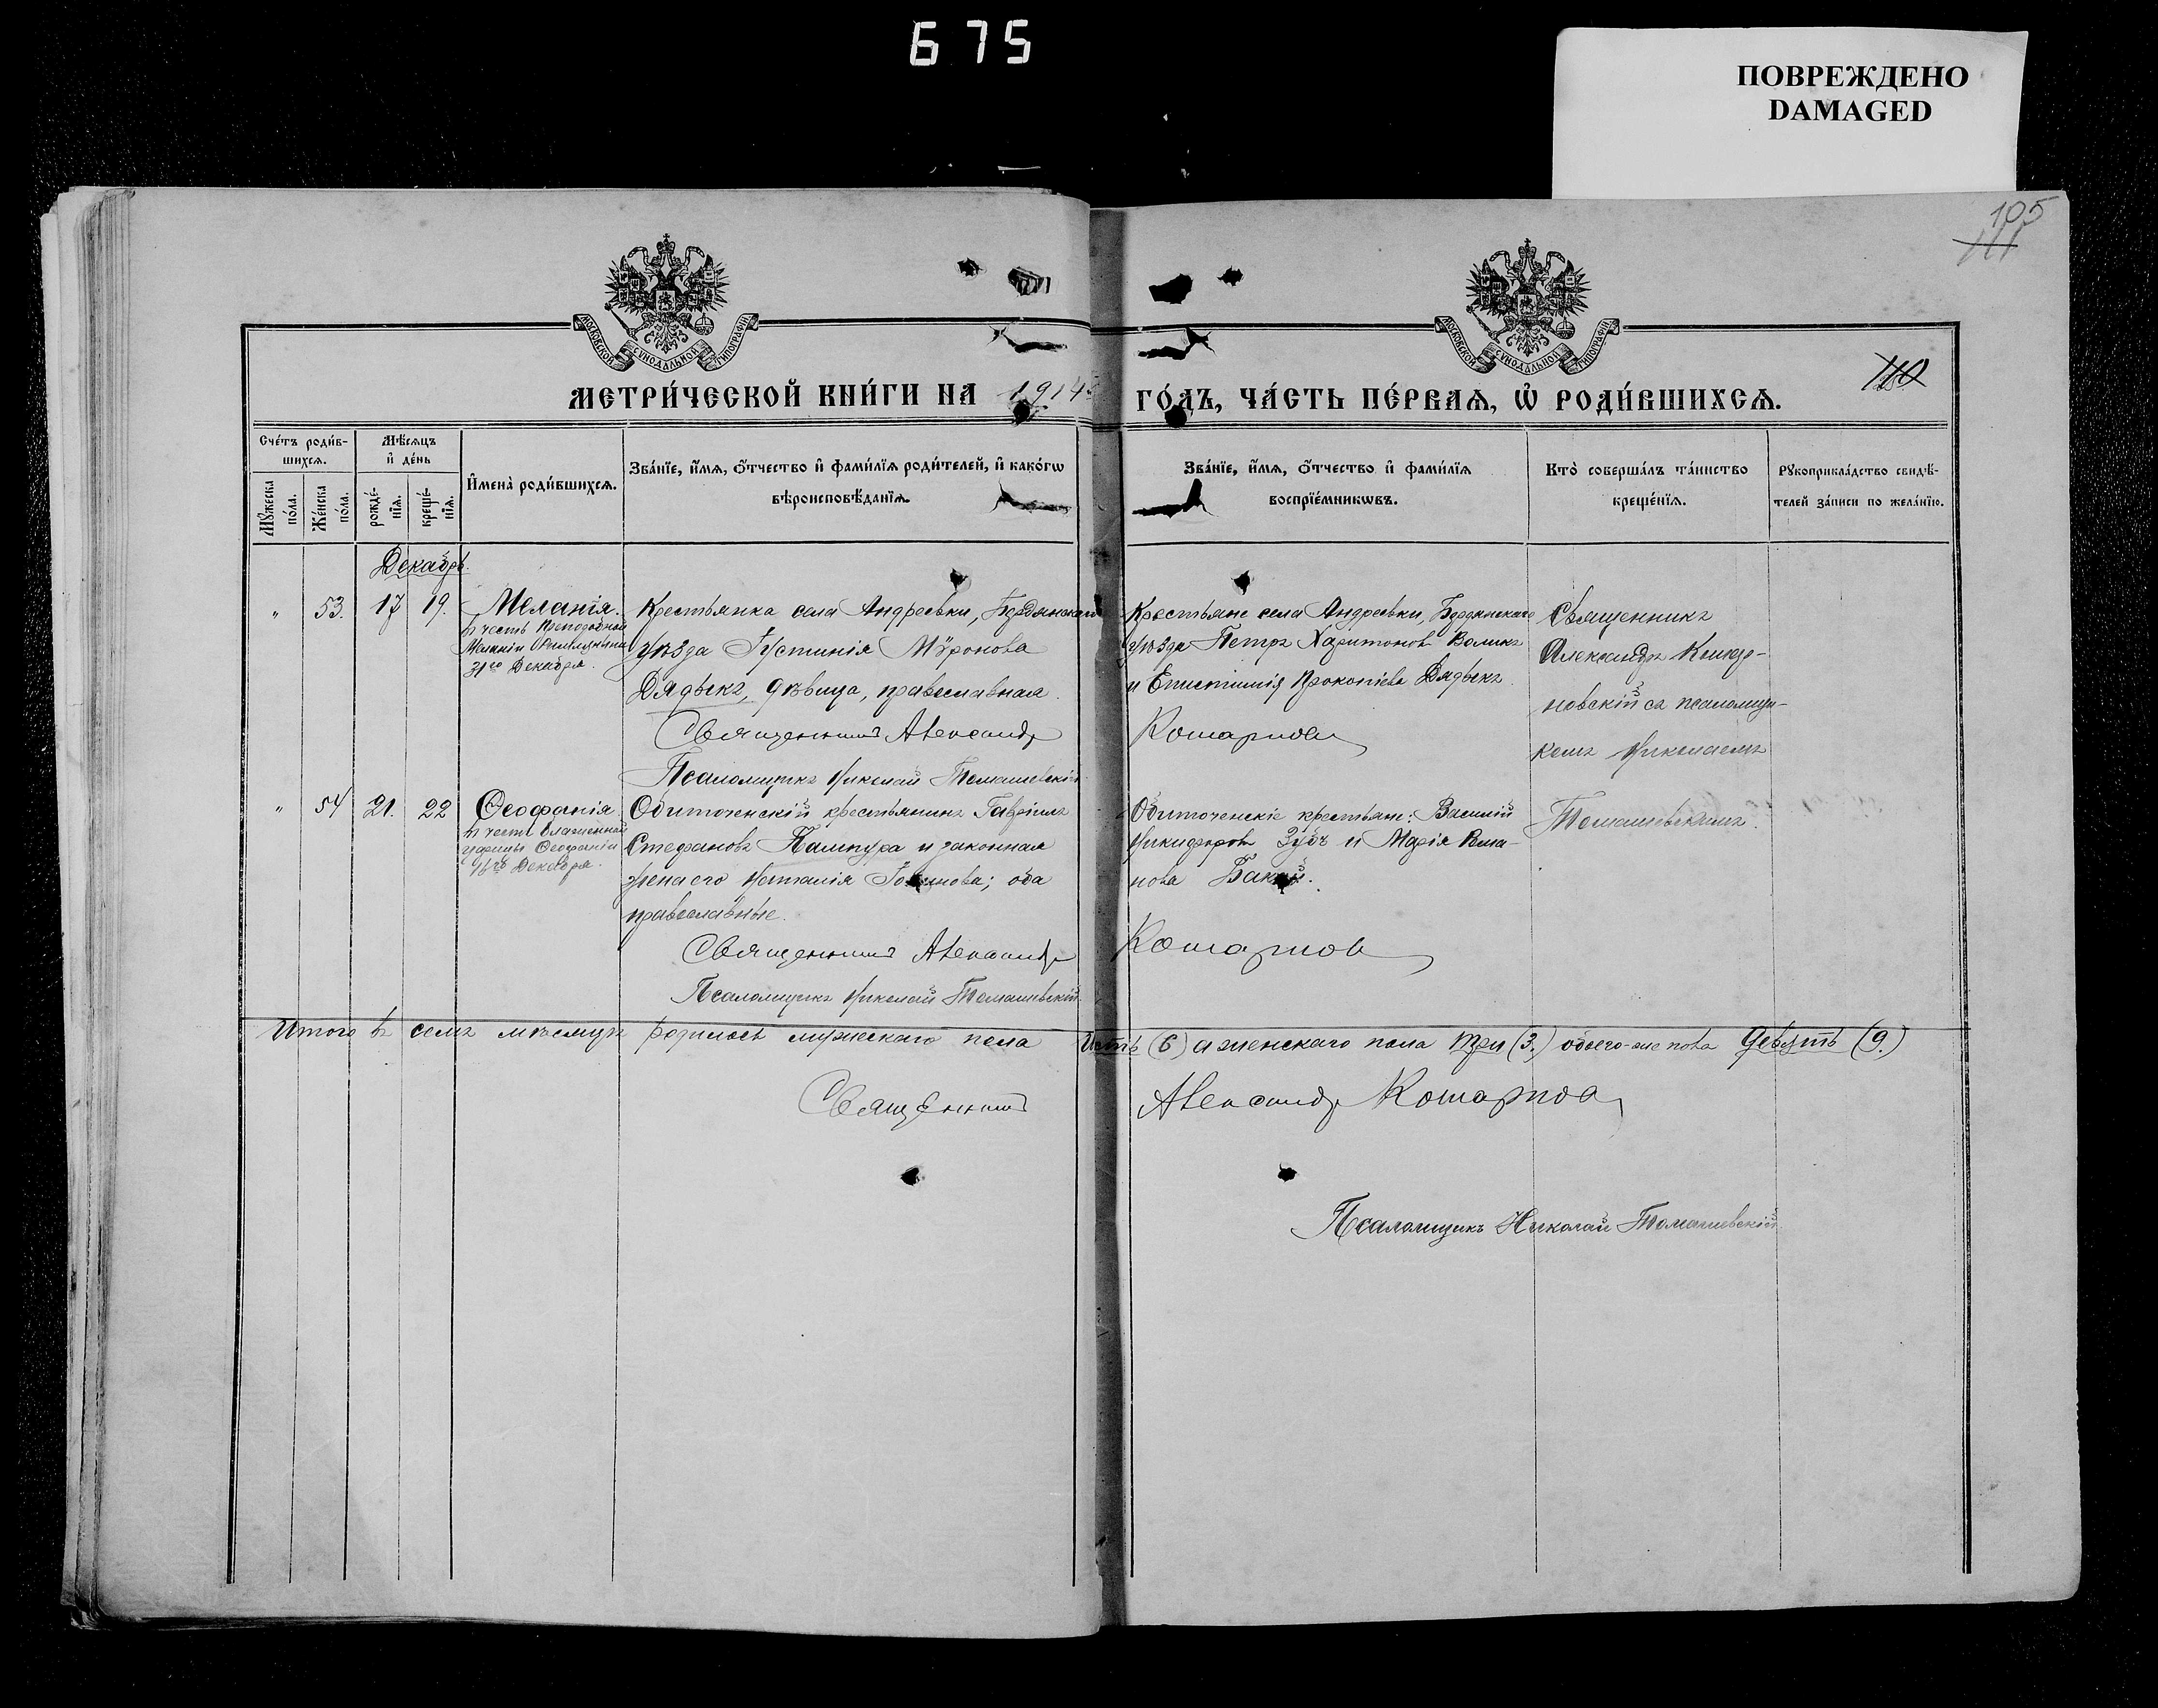 675
ПОВРЕЖДЕНО
DAMAGED
105
111
110
МОСКОВСКОЙ СѴНОДАЛЬНОЙ ТИПОГРАФІИ
МОСКОВСКОЙ СѴНОДАЛЬНОЙ ТИПОГРАФІИ
МЕТРИ́ЧЕСКОЙ КНИ́ГИ НА 1914
ГО́ДЪ, ЧА́СТЬ ПЕ́РВАѦ, Ѡ҆ РОДИ́ВШИХСѦ.
Сче́тъ роди́в-
шихсѧ.
Мꙋ́жеска по́ла.
Же́нска по́ла.
Мѣ́сѧцъ
и҆ де́нь
рожде́-
нїѧ.
креще́-
нїѧ.
И҆мена̀ роди́вшихсѧ.
Зва́нїе, и҆́мѧ, ѻ҆́тчество и҆ фами́лїѧ роди́телей, и҆ како́гѡ
вѣроисповѣ́данїѧ.
Зва́нїе, и҆́мѧ, ѻ҆́тчество и҆ фами́лїѧ
воспрїе́мникѡвъ.
Кто̀ соверша́лъ та́инство
креще́нїѧ.
Рꙋкоприкла́дство свидѣ́-
телей за́писи по жела́нїю.
Декабрь.
" 53. 17 19. Меланія.
въ честь Преподобной
Меланіи Римляныни
31го Декабря.
Крестьянка села Андреевки, Бердянскаго
уѣзда Іустинія Мѵронова
Дядыкъ, дѣвица, православная.
Священникъ Александръ
Псаломщикъ Николай Томашевскій
Крестьяне села Андреевки, Бердянскаго
уѣзда Петръ Харитоновъ Воликъ
и Епистимія Прокопіева Дядыкъ
Священникъ
Александръ
новскій съ псаломщи-
комъ Николаемъ
Томашевскимъ.
" 54 21. 22 Ѳеофанія
въ честь блаженной
царицы Ѳеофаніи
16го Декабря.
Обиточенскій крестьянинъ Гавріилъ
Стефановъ и законная
жена его Наталія; оба
православные.
Священникъ Александръ
Псаломщикъ Николай Томашевскій
Обиточенскіе крестьяне: Василій
Никифоровъ Зубъ и Марія
нова
Итого въ семъ мѣсяцѣ родилось мужескаго пола шесть (6) а женскаго пола три (3.) обоего-же пола девять (9.)
Священникъ Александръ
Псаломщикъ Николай Томашевскій